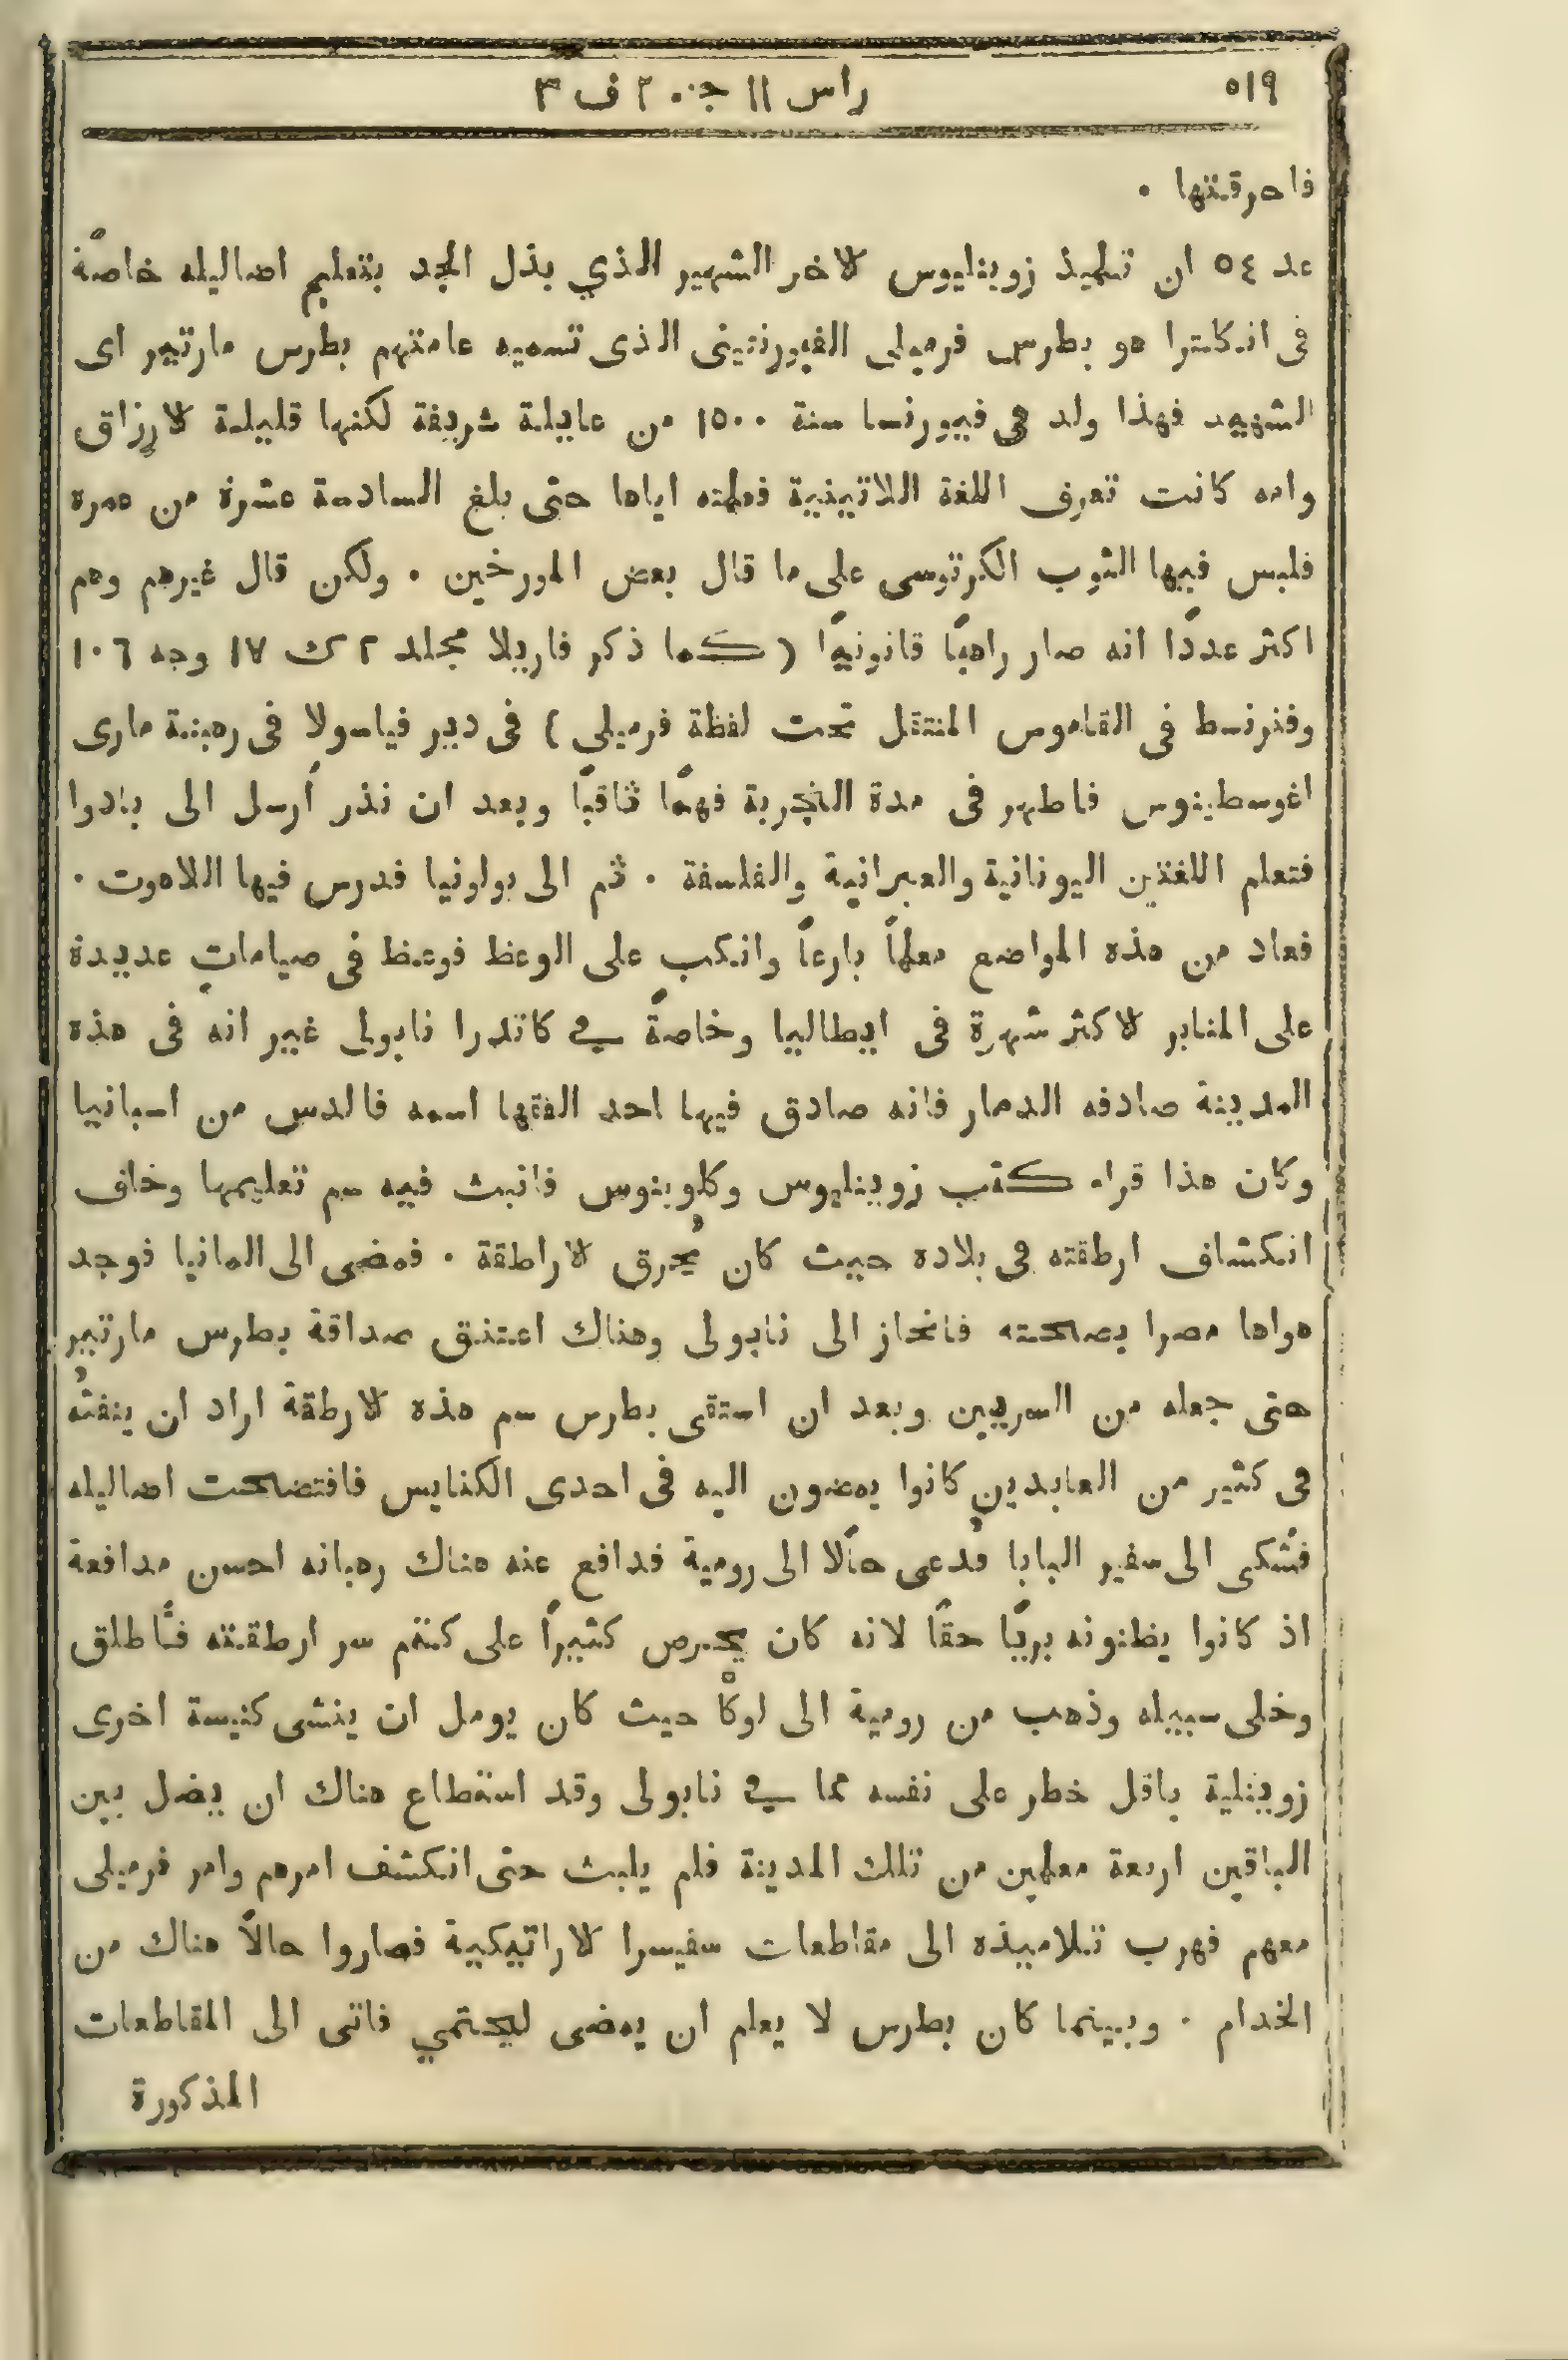 ٥١٩ راس ١١ جز ٢ ف ٣
فاحرقتها ٠
عد ٥٤ ان تلميذ زوينليوس لاخر الشهير الذي بذل الجد بتعليم اضاليله خاصّة
فى انكلترا هو بطرس فرميلى الفيورنتينى الذى تسميه عامتهم بطرس مارتير اى
الشهيد فهذا ولد فى فيورنسا سنة ١٥٠٠ من عايلة شريفة لكنها قليلة لارزاق
وامه كانت تعرف اللغة اللاتينية فعلمته اياها حتى بلغ السادسة عشرة من عمره
فلبس فيها الثوب الكرتوسى على ما قال بعض المورخين ٠ ولكن قال غيرهم وهم
اكثر عددًا انه صار راهبًا قانونيًا ( كما ذكر فاريلا مجلد ٢ ك ١٧ وجه ١٠٦
وفنرنسط فى القاموس المنتقل تحت لفظة فرميلي ) فى دير فياسولا فى رهبنة مارى
اغوسطينوس فاظهر فى مدة التجربة فهمًا ثاقبًا وبعد ان نذر أرسل الى بادوا
فتعلم اللغتين اليونانية والعبرانية والفلسفة ٠ ثم الى بولونيا فدرس فيها اللاهوت ٠
فعاد من هذه المواضع معلمًا بارعًا وانكب على الوعظ فوعظ فى صياماتٍ عديدة
على المنابر لاكثر شهرة فى ايطاليا وخاصةً في كاتدرا نابولى غير انه فى هذه
المدينة صادفه الدمار فانه صادق فيها احد الفقها اسمه فالدس من اسبانيا
وكان هذا قراء كتب زوينليوس وكلوينوس فانبث فيه سم تعليمها وخاف
انكشاف ارطقته فى بلاده حيث كان يُحرق لاراطقة ٠ فمضى الى المانيا فوجد
هواها مضرا بصحته فانحاز الى نابولى وهناك اعتنق صداقة بطرس مارتير
حتى جعله من السريين وبعد ان استقى بطرس سم هذه لارطقة اراد ان ينفثُه
فى كثير من العابدين كانوا يمضون اليه فى احدى الكنايس فافتضحت اضاليله
فشُكى الى سفير البابا فدُعى حالًا الى رومية فدافع عنه هناك رهبانه احسن مدافعة
اذ كانوا يظنونه بريًا حقًا لانه كان يحرص كثيرًا على كتم سر ارطقته فأُطلق
وخلى سبيله وذهب من رومية الى لوكْا حيث كان يومل ان ينشى كنيسة اخرى
زوينلية باقل خطر على نفسه مما في نابولى وقد استطاع هناك ان يضل بين
الباقين اربعة معلمين من تلك المدينة فلم يلبث حتى انكشف امرهم وامر فرميلى
معهم فهرب تلاميذه الى مقاطعات سفيسرا لاراتيكية فصاروا حالًا هناك من
الخدام ٠ وبينما كان بطرس لا يعلم ان يمضى ليحتمي فاتى الى المقاطعات
المذكورة